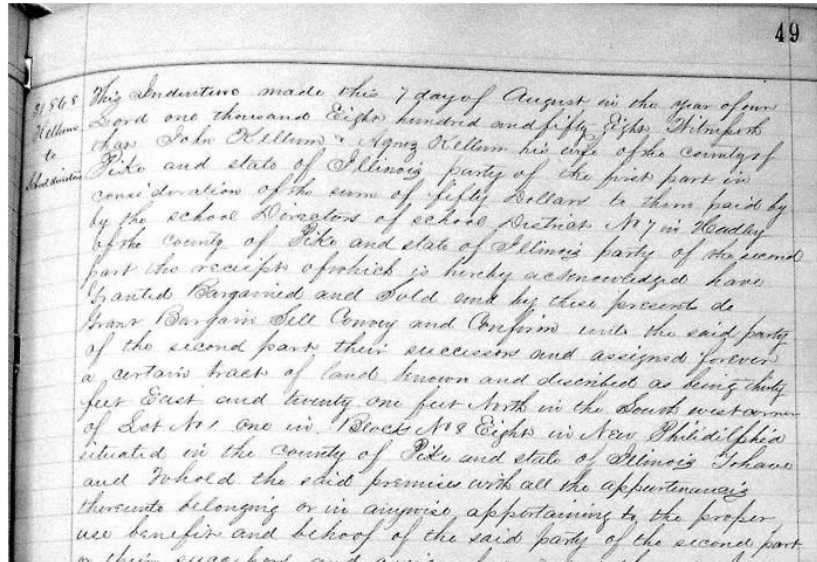 49
31868
Kellum
to
School directors
This Indenture made this 7 day of August in the year of our
Lord one thousand Eight hundred and fifty Eight Witnesseth
that John Kellum & Agnez Kellum his wife of the county of
Pike and state of Illinois party of the first part in
consideration of the sum of fifty Dollars to them paid by
by the school Directors of school District No 7 in Hadley
of the county of Pike and state of Illinois party of the second
part the receipt of which is hereby acknowledged have
Granted Bargained and Sold and by these presents do
Grant Bargain Sell Convey and Confirm unto the said party
of the second part their successors and assigned forever
a certain tract of land known and discribed as being thirty
feet East and twenty one feet North in the South west corner
of Lot No 1 one in Block No 8 Eight in New Philidilphia
situated in the county of Pike and state of Illinois To have
and To hold the said premises with all the appurtenancis
thereunto belonging or in anywise appertaining to the proper
use benefit and behoof of the said party of the second part
or their successors and